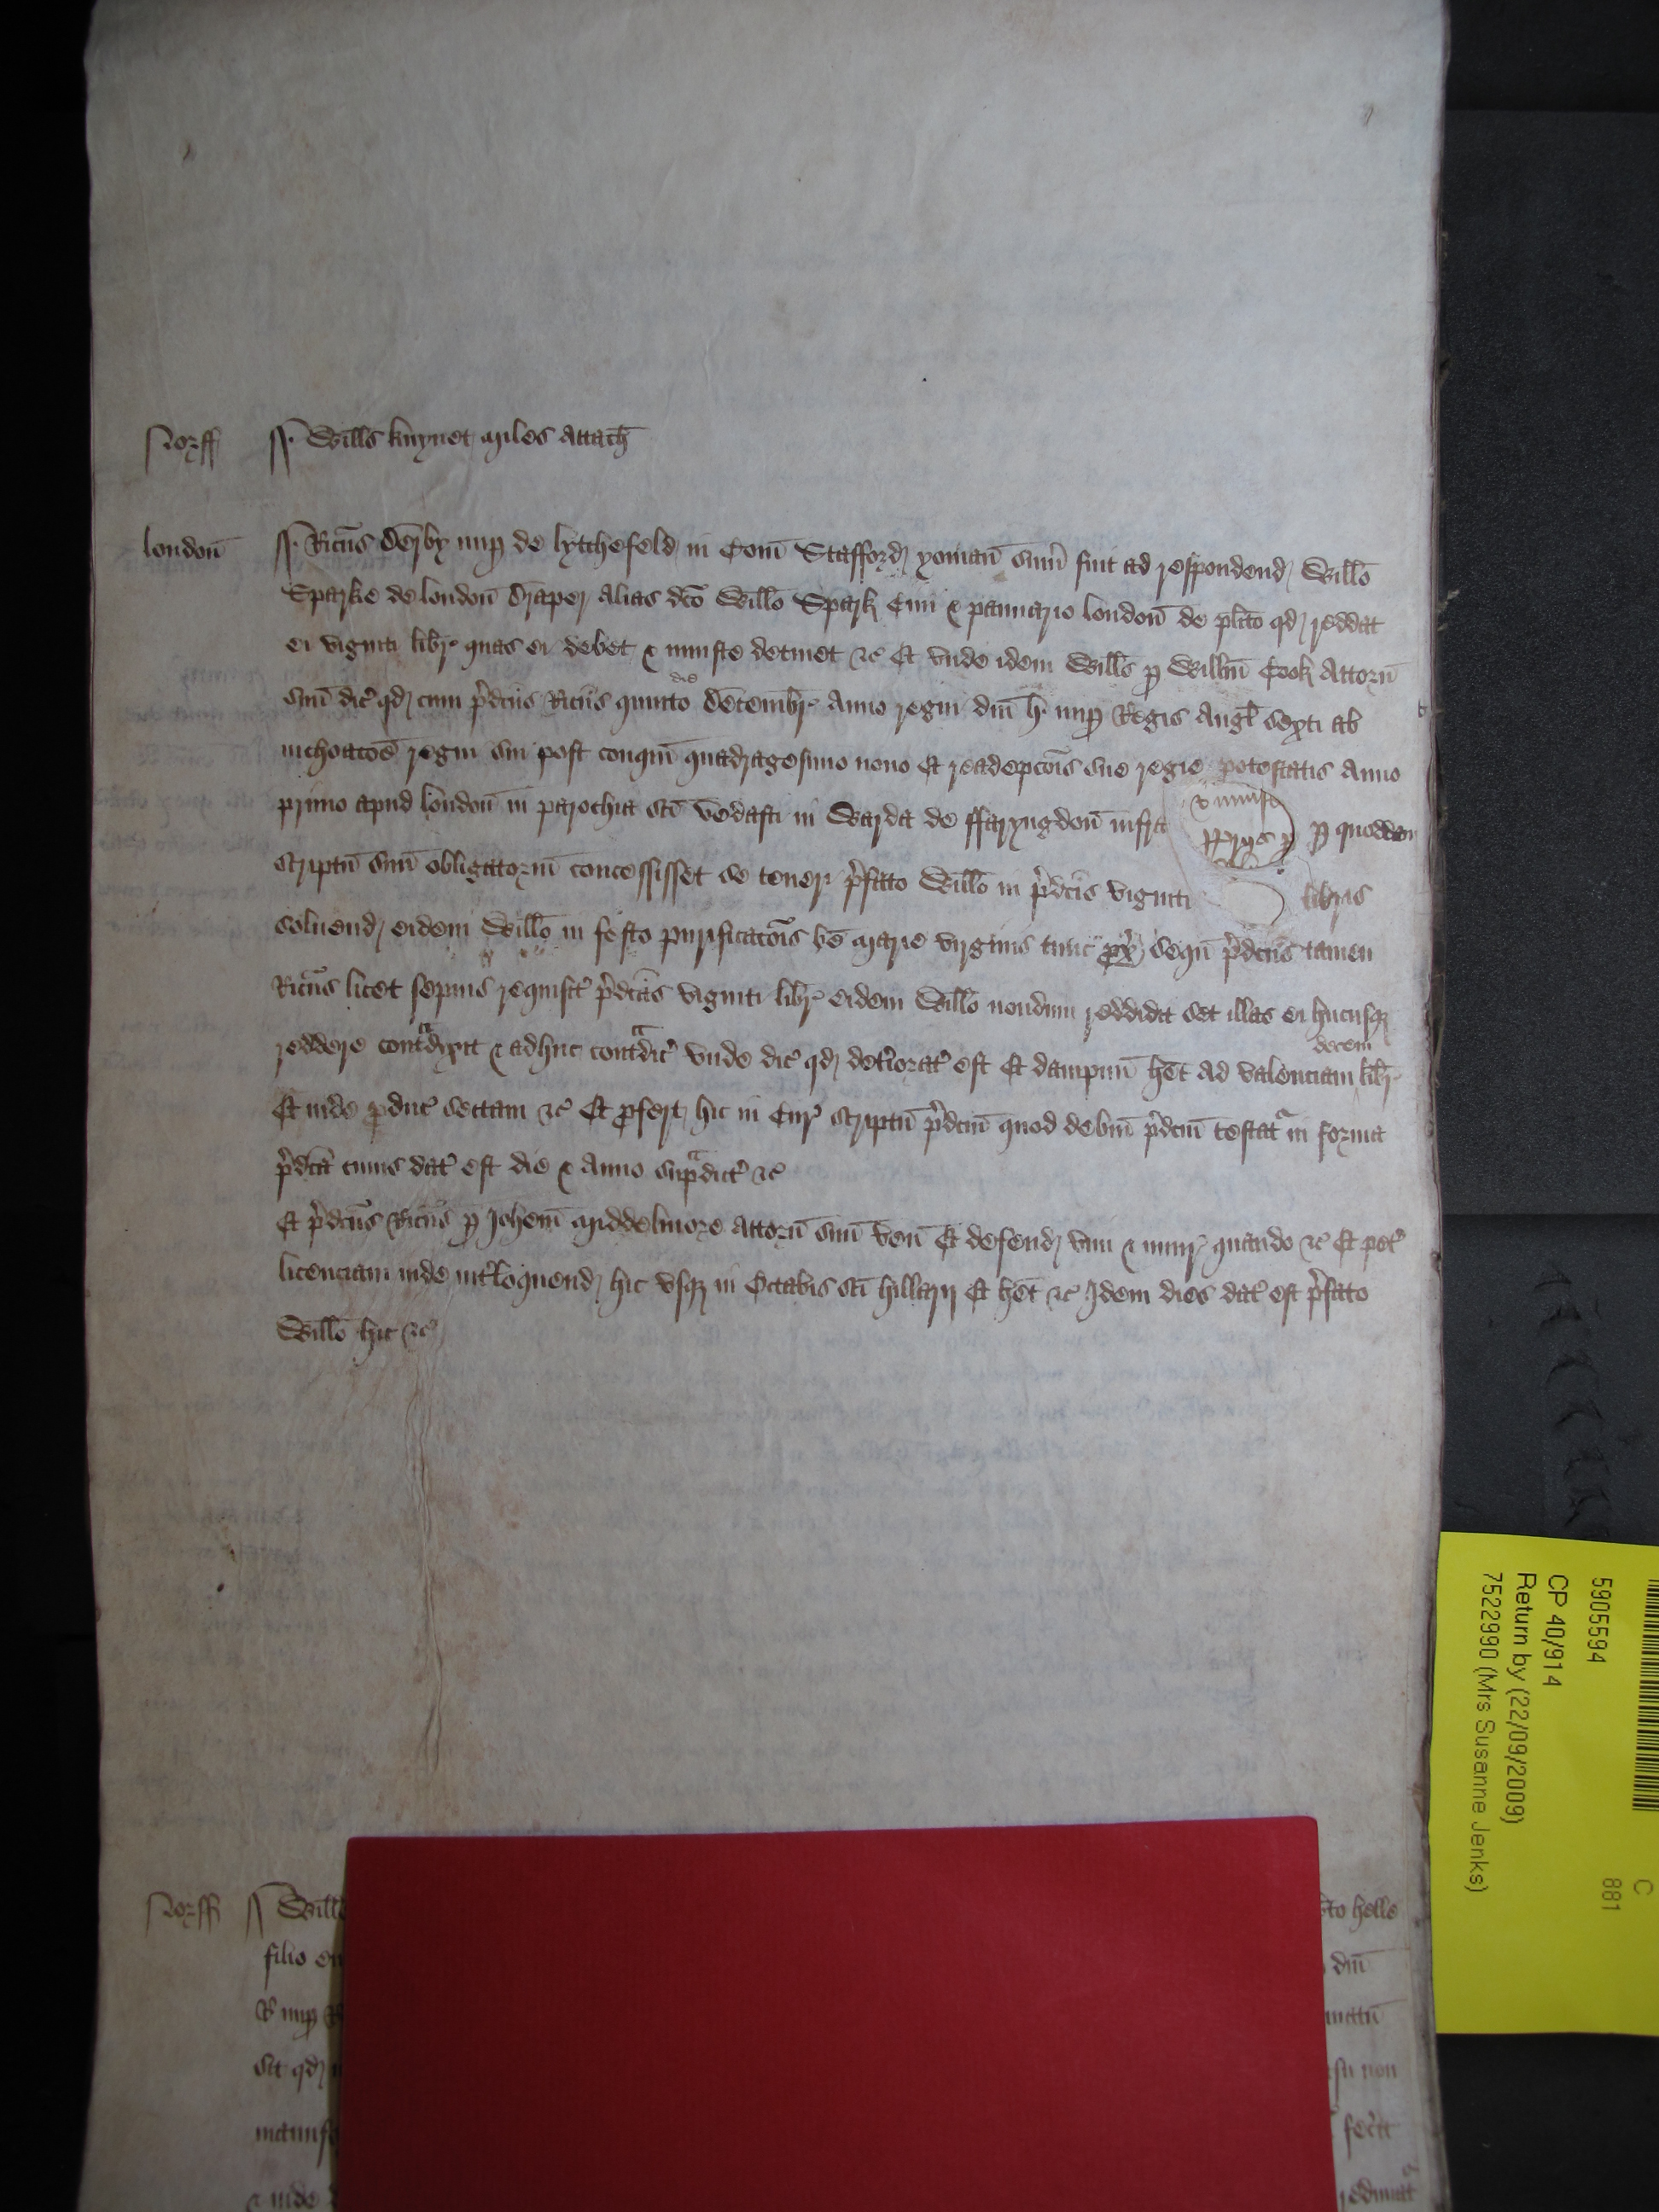 Norff Wills knyvet miles attach
london Ricus Derby nup de lychefeld in Com Stafford yoman sum fuit ad respondend Willo
Sparke de london Draper alias dco Willo Spark Civi & pannario london de plito qd reddat
ei viginti libr quas ei debet & iniuste detinet &c Et unde idem Wills p Willm Cook attorn
suum dic qd cum pdcus Ricus quinto die Decembr anno regni dni h nup Regis Angl sexti ab
inchoacoe regni sui post conqm quadragesimo nono Et readepcois sue regie potestatis anno
primo apud london in parochia sci vedasti in Warda de ffaryngdon infra p quoddam
scriptu suum obligatoriu concessisset se teneri pfato Willo in pdcis viginti libris
solvend eidem Willo in festo purificacois be marie virginis tunc px sequ pdcus tamen
Ricus licet sepius requisit pdcas viginti libr eidem Willo nondum reddidit set illas ei hucusq
reddere contradixit & adhuc contradic unde dic qd deterorat est Et dampnu het ad valenciam decem libr
Et inde produc sectam &c Et profert hic in Cur scriptu pdcm quod debitu pdcm testat in forma
pdca cuius dat est die & anno supradict &c
Et pdcus Ricus p Johem Middelmore attorn suum ven Et defend vim & iniur quando &c Et pet
licenciam inde interloquend hic usq in Octabis sci hillarii Et het &c Idem dies dat est pfato
Willo hic &c
Norff Will to helle
filio dni
R nup
sit qd su non
fecit
& inde
5905594
CP 40/914
Return by (22/09/2009)
7522990 (Mrs Susanne Jenks)
C
881